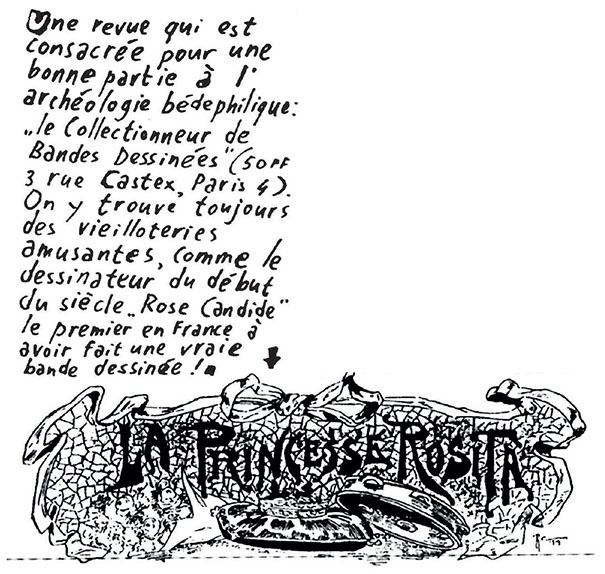 Une revue qui est
consacrée pour une
bonne partie à l'
archéologie bédéphilique:
„le Collectionneur de
Bandes Dessinées" (50FF
3 rue Castex, Paris 4).
On y trouve toujours
des vieilloteries
amusantes, comme le
dessinateur du début
du siècle „Rose Candide"
le premier en France à
avoir fait une vraie
bande dessinée!
LA PRINCESSE ROSITA